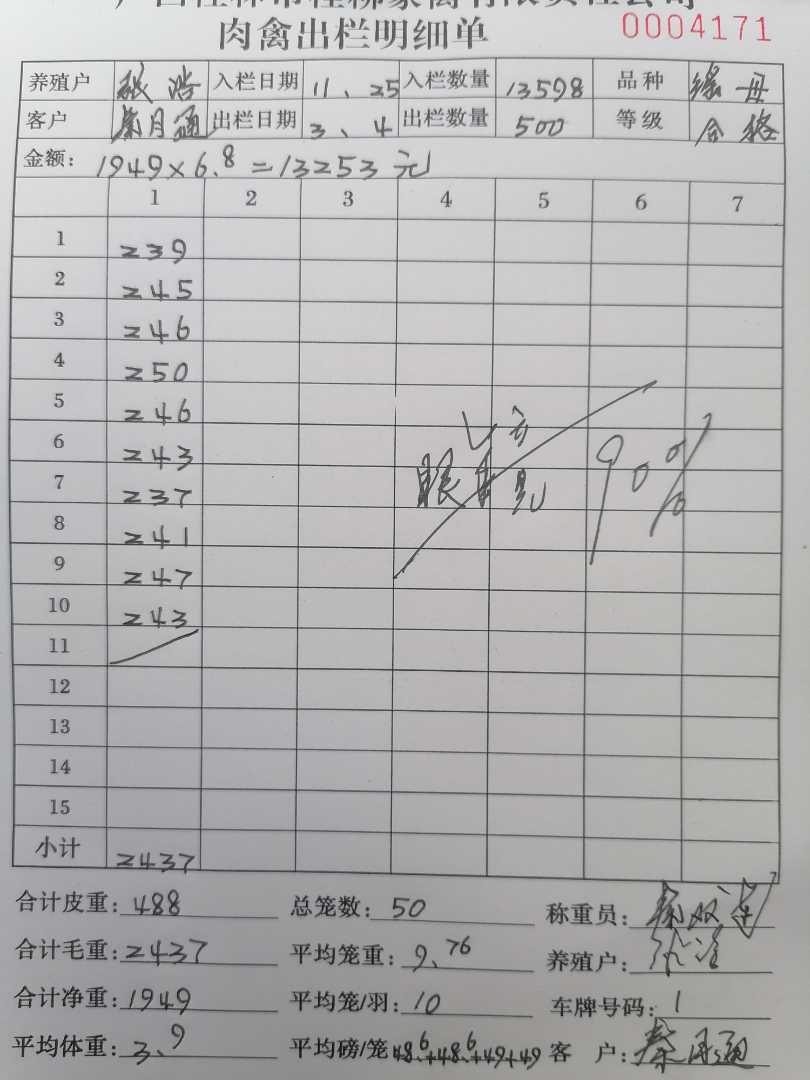 肉禽出栏明细单 0004171
养殖户 张浩 入栏日期 11、25 入栏数量 13598 品种
客户 秦月通 出栏日期 3、4 出栏数量 500 等级 合格
金额： 1949×6.8=13253元
1 2 3 4 5 6 7
1 239
2 245
3 246
4 250
5 246
6 243
7 237
8 241
9 247
10 243
11
12
13
14
15
90%
小计 2437
合计皮重：488 总笼数：50 称重员：
合计毛重：2437 平均笼重：9.76 养殖户：张浩
合计净重：1949 平均笼/羽：10 车牌号码：1
平均体重：3.9 平均磅/笼 48.6+48.6+49+49 客 户：秦月通